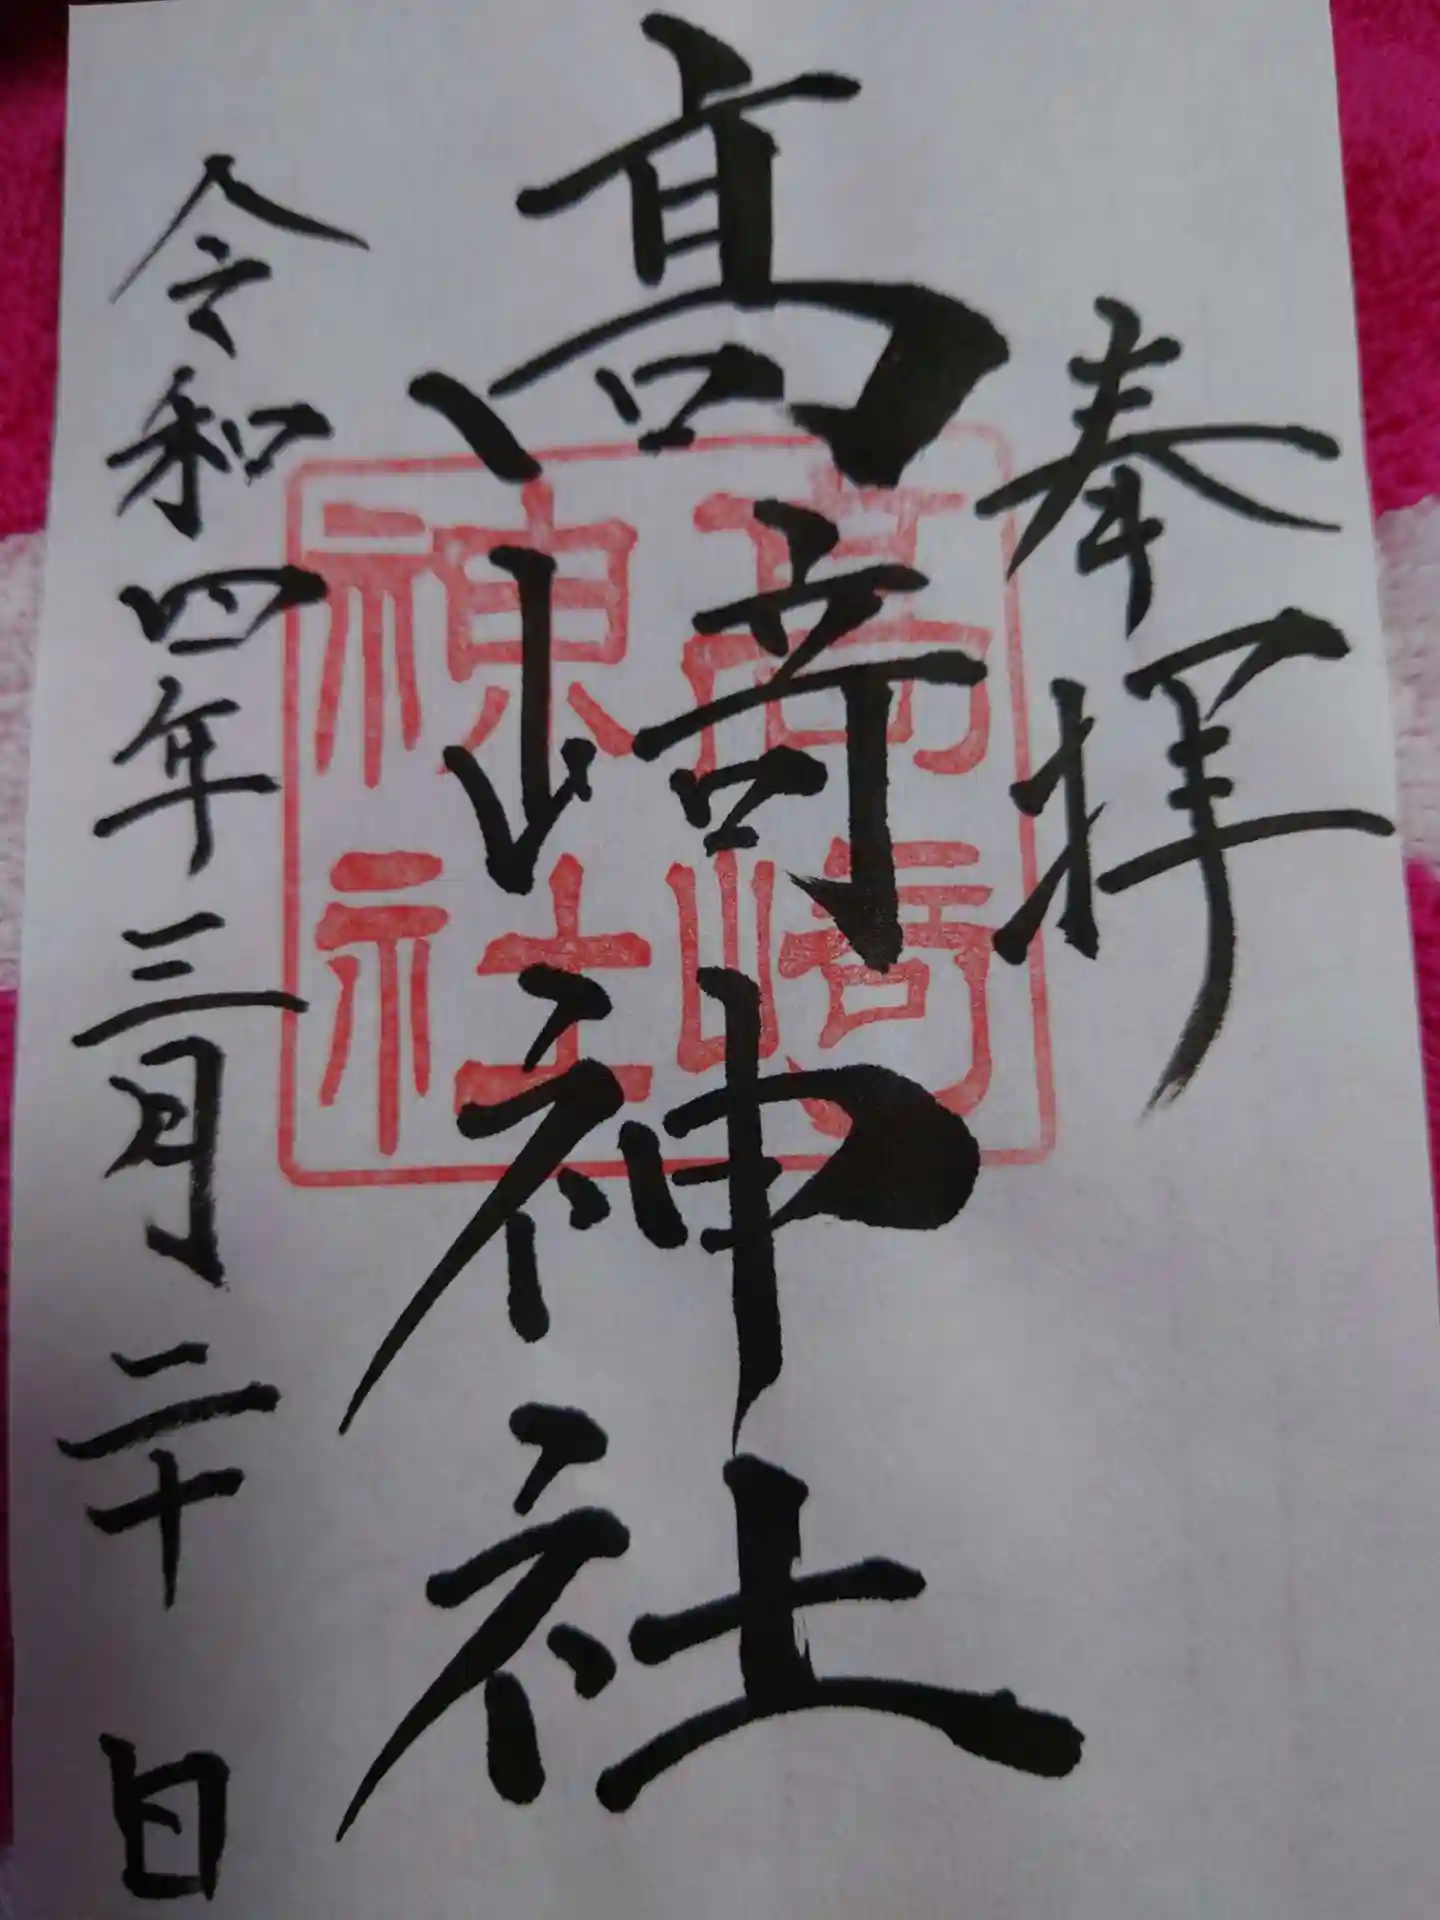 奉拝
髙﨑神社
高崎
神社
令和四年三月二十日